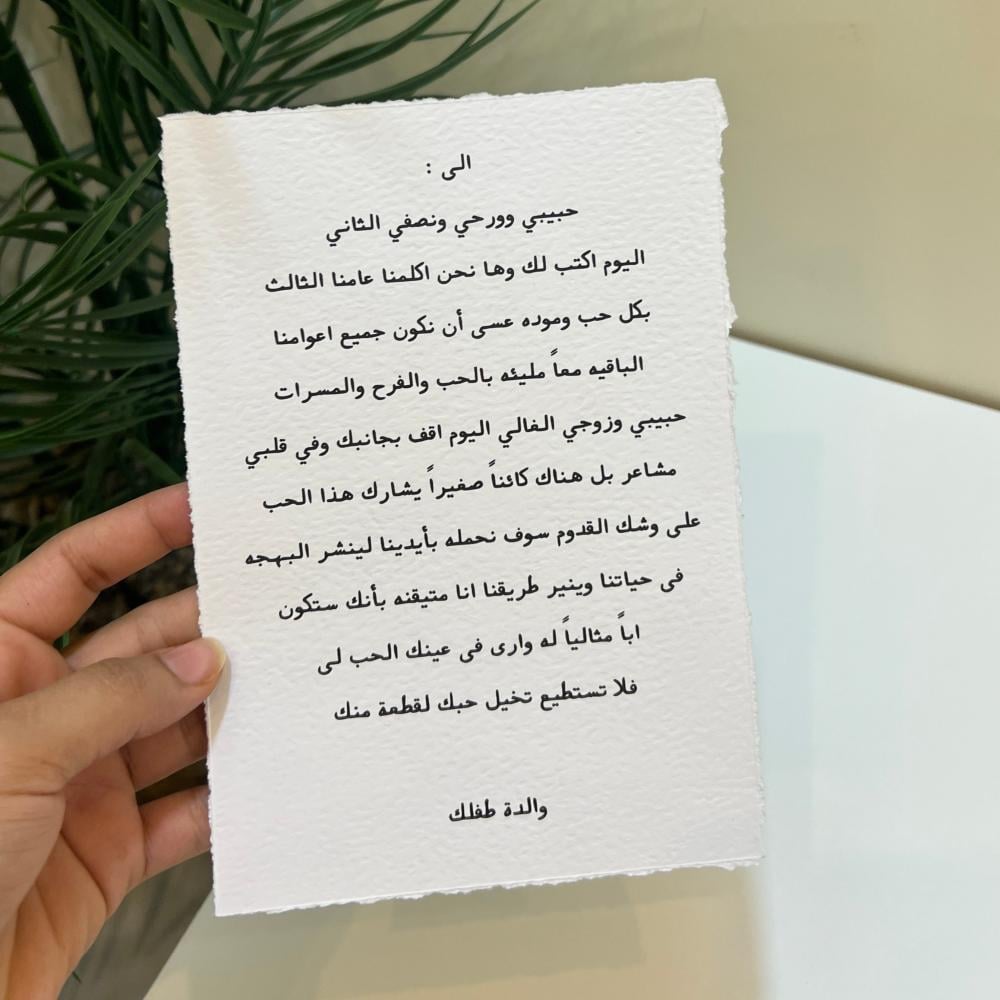 الى :
حبيبي وورحي ونصفي الثاني
اليوم اكتب لك وها نحن اكلمنا عامنا الثالث
بكل حب وموده عسى أن نكون جميع اعوامنا
الباقيه معاً مليئه بالحب والفرح والمسرات
حبيبي وزوجي الغالي اليوم اقف بجانبك وفي قلبي
مشاعر بل هناك كائناً صغيراً يشارك هذا الحب
على وشك القدوم سوف نحمله بأيدينا لينشر البهجه
في حياتنا وينير طريقنا انا متيقنه بأنك ستكون
اباً مثالياً له وارى في عينك الحب لى
فلا تستطيع تخيل حبك لقطعة منك
والدة طفلك